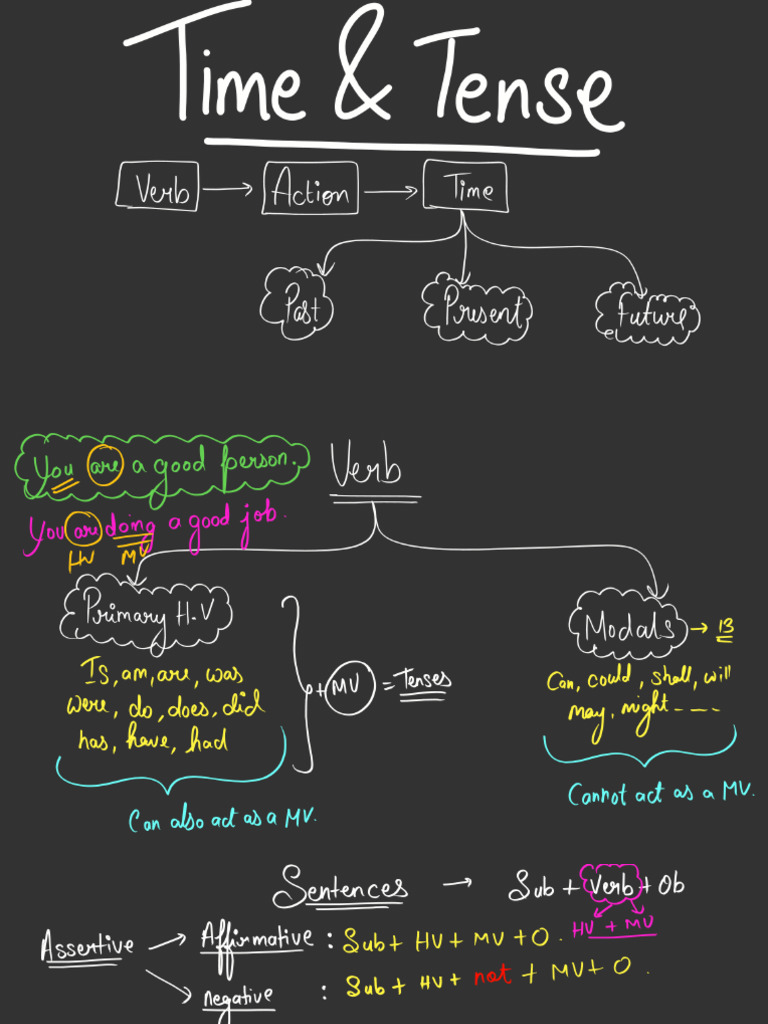 Time & Tense
Verb → Action → Time
Past Present Future
You are a good person.
Verb
You are doing a good job.
HV MV
Primary H.V
Modals → 13
Is, am, are, was
were, do, does, did
has, have, had
+ MV = Tenses
Can, could, shall, will
may, might ----
Can also act as a MV.
Cannot act as a MV.
Sentences → Sub + Verb + Ob
HV + MV
Assertive → Affirmative : Sub + HV + MV + O.
negative : Sub + HV + not + MV + O.